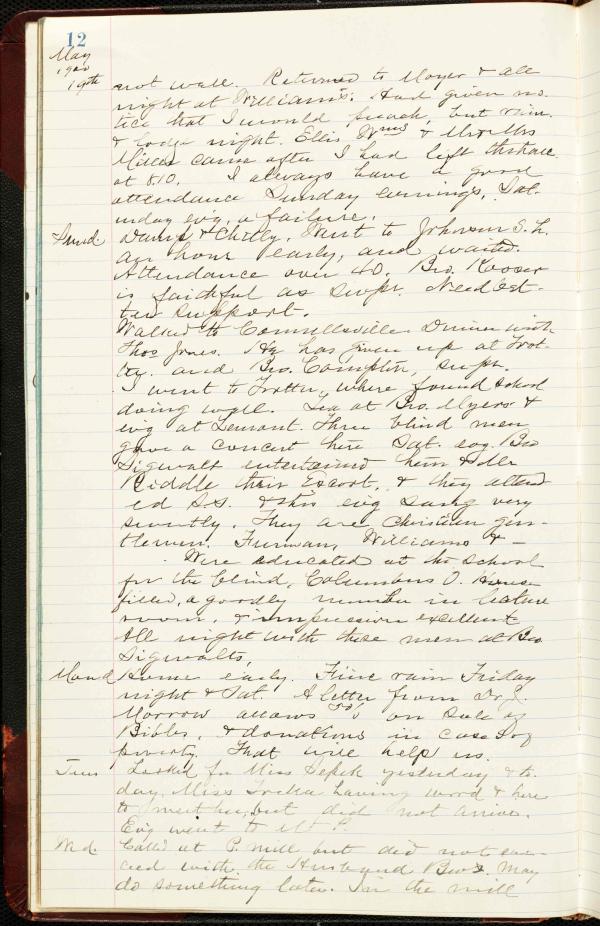 12
May
1900
19th not well. Returned to Moyer & all
night at Williams. Had given no-
tice that I would preach, but rain
& lodge night. Ellis Wms & Mr & Mrs
Miller came after I had left the place
at 8.10. I always have a good
attendance Sunday evenings, Sat-
urday evg, a failure.
Sund. Damp & Chilly. Went to Johnson S. H.
an hour early, and waited.
Attendance over 40. Bro. Kooser
is faithful as Supt. Need bet-
ter support.
Walked to Connellsville. Dinner with
Thos Jones. He has given up at Trot-
ter. and Bro. Compton, supt.
I went to Trotter, where found school
doing well. Tea at Bro. Myers &
evg at Lemont. Three blind men
gave a concert here Sat. evg. Bro
Sigwalt entertained them &
Riddle their Escort, & they attend
ed S.S. & this evg sang very
sweetly. They are Christian gen-
tlemen. Furman, Williams & —
Were educated at the School
for the blind, Columbus O. House
filled, a goodly number in lecture
room, & impression excellent
All night with these men at Bro
Sigwalts,
Mond Home early. Fine rain Friday
night & Sat. A letter from Dr. J.
Morrow allows 50% on Sale of
Bibles, & donations in cases of
poverty. That will help us.
Tues Looked for Miss yesterday & to-
day, Miss having word & here
to meet her, but did not arrive.
Evg went to Mt P.
Wed. Called at P. mill but did not suc-
ceed with the Husband Bros. May
do something later. In the mill